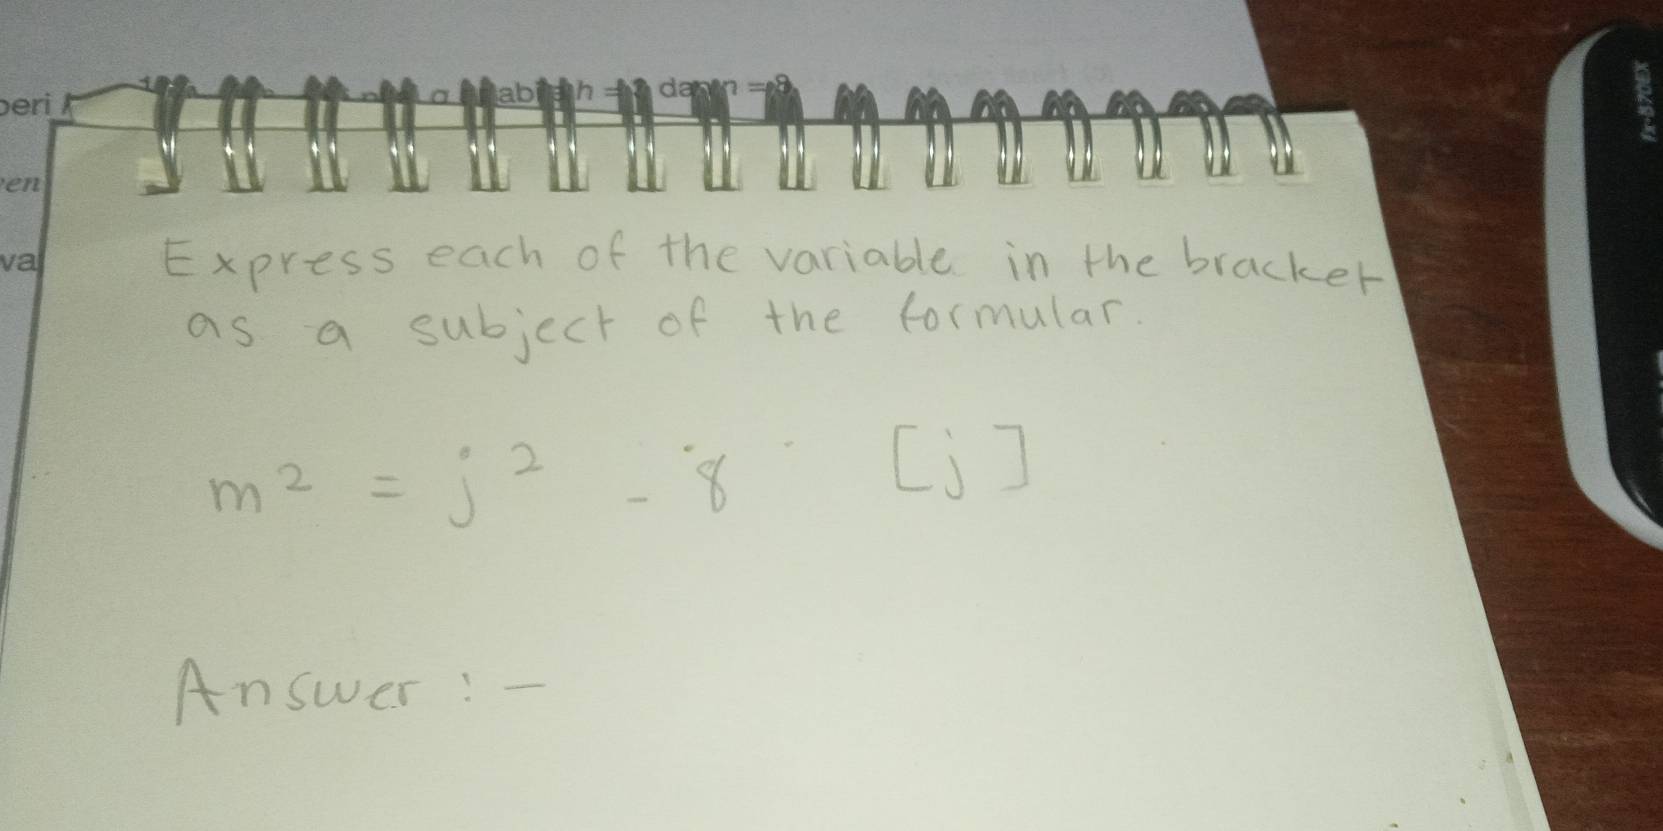 beri
abi h = dan n = 8
en
va
fx-570EX
Express each of the variable in the bracket
as a subject of the formular.
m² = j² - 8 [j]
Answer : -